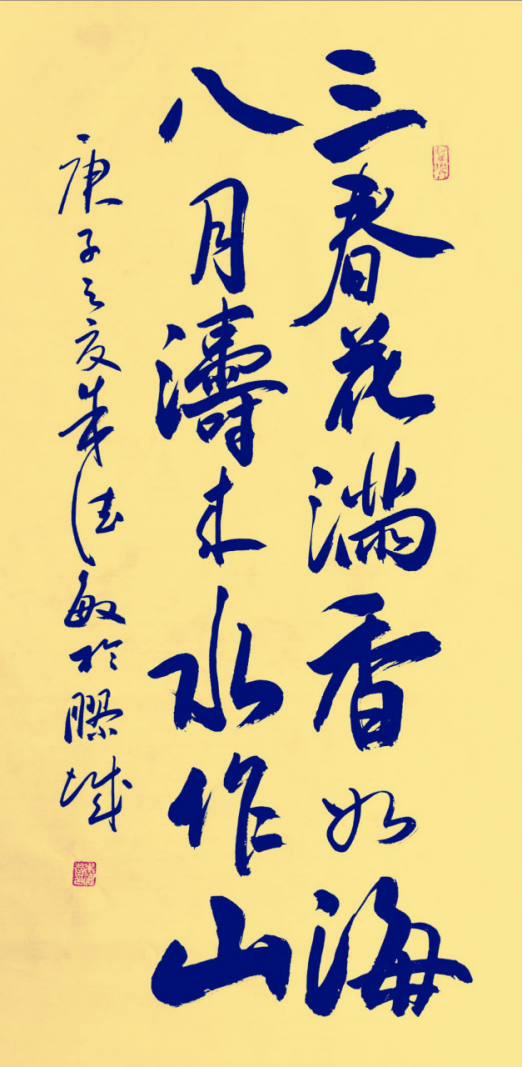 三春花满香如海
八月濤来水作山
庚子之夏朱德敏於膠城